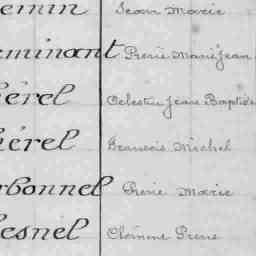 emin Jean Marie
eminant Pierre Marie Jean
hérel Celestin Jean Baptiste
hérel François Michel
rbonnel Pierre Marie
esnel Pierre